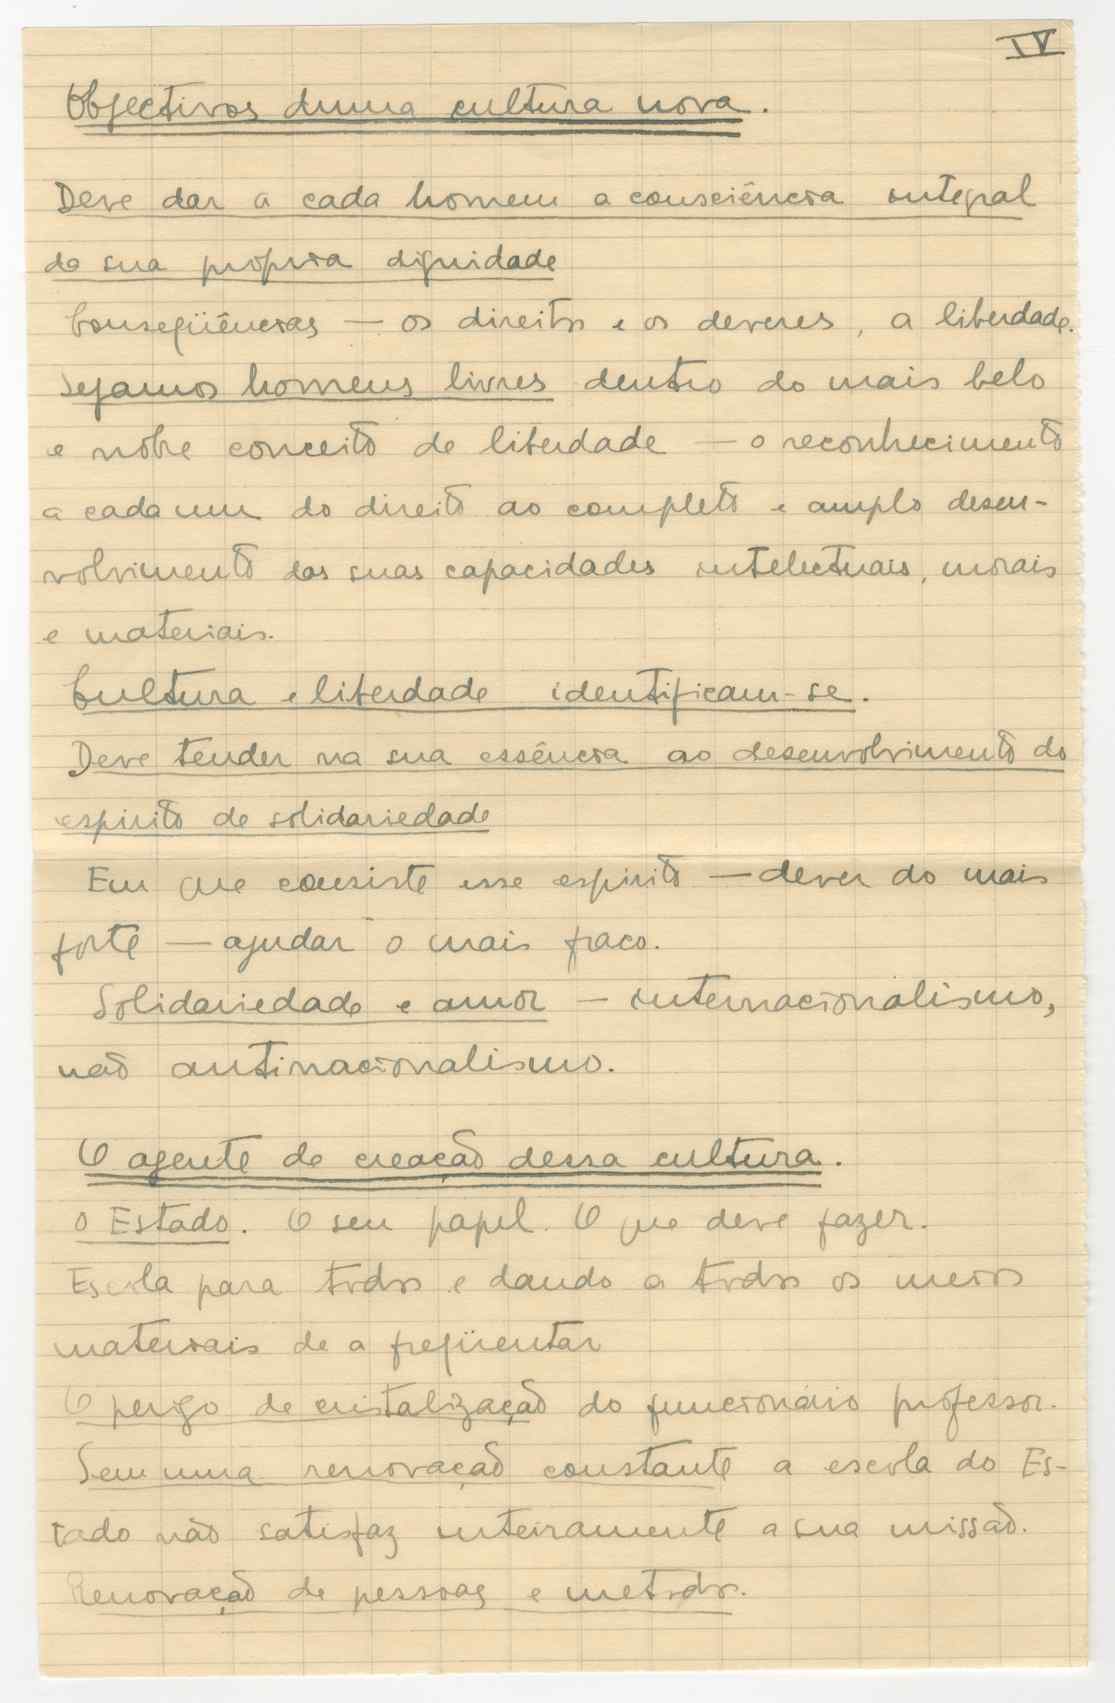 IV
Objectivos duma cultura nova.
Deve dar a cada homem a consciência integral
da sua própria dignidade
Conseqüências — os direitos e os deveres, a liberdade.
Sejamos homens livres dentro do mais belo
e nobre conceito de liberdade — o reconhecimento
a cada um do direito ao completo e amplo desen-
volvimento das suas capacidades intelectuais, morais
e materiais.
Cultura e liberdade identificam-se.
Deve tender na sua essência ao desenvolvimento do
espírito de solidariedade
Em que consiste esse espírito — dever do mais
forte — ajudar o mais fraco.
Solidariedade e amor — internacionalismo,
não antinacionalismo.
O agente de creação dessa cultura.
O Estado. O seu papel. O que deve fazer.
Escola para todos e dando a todos os meios
materiais de a freqüentar
O perigo de cristalização do funcionário professor.
Sem uma renovação constante a escola do Es-
tado não satisfaz inteiramente a sua missão.
Renovação de pessoas e metodos.